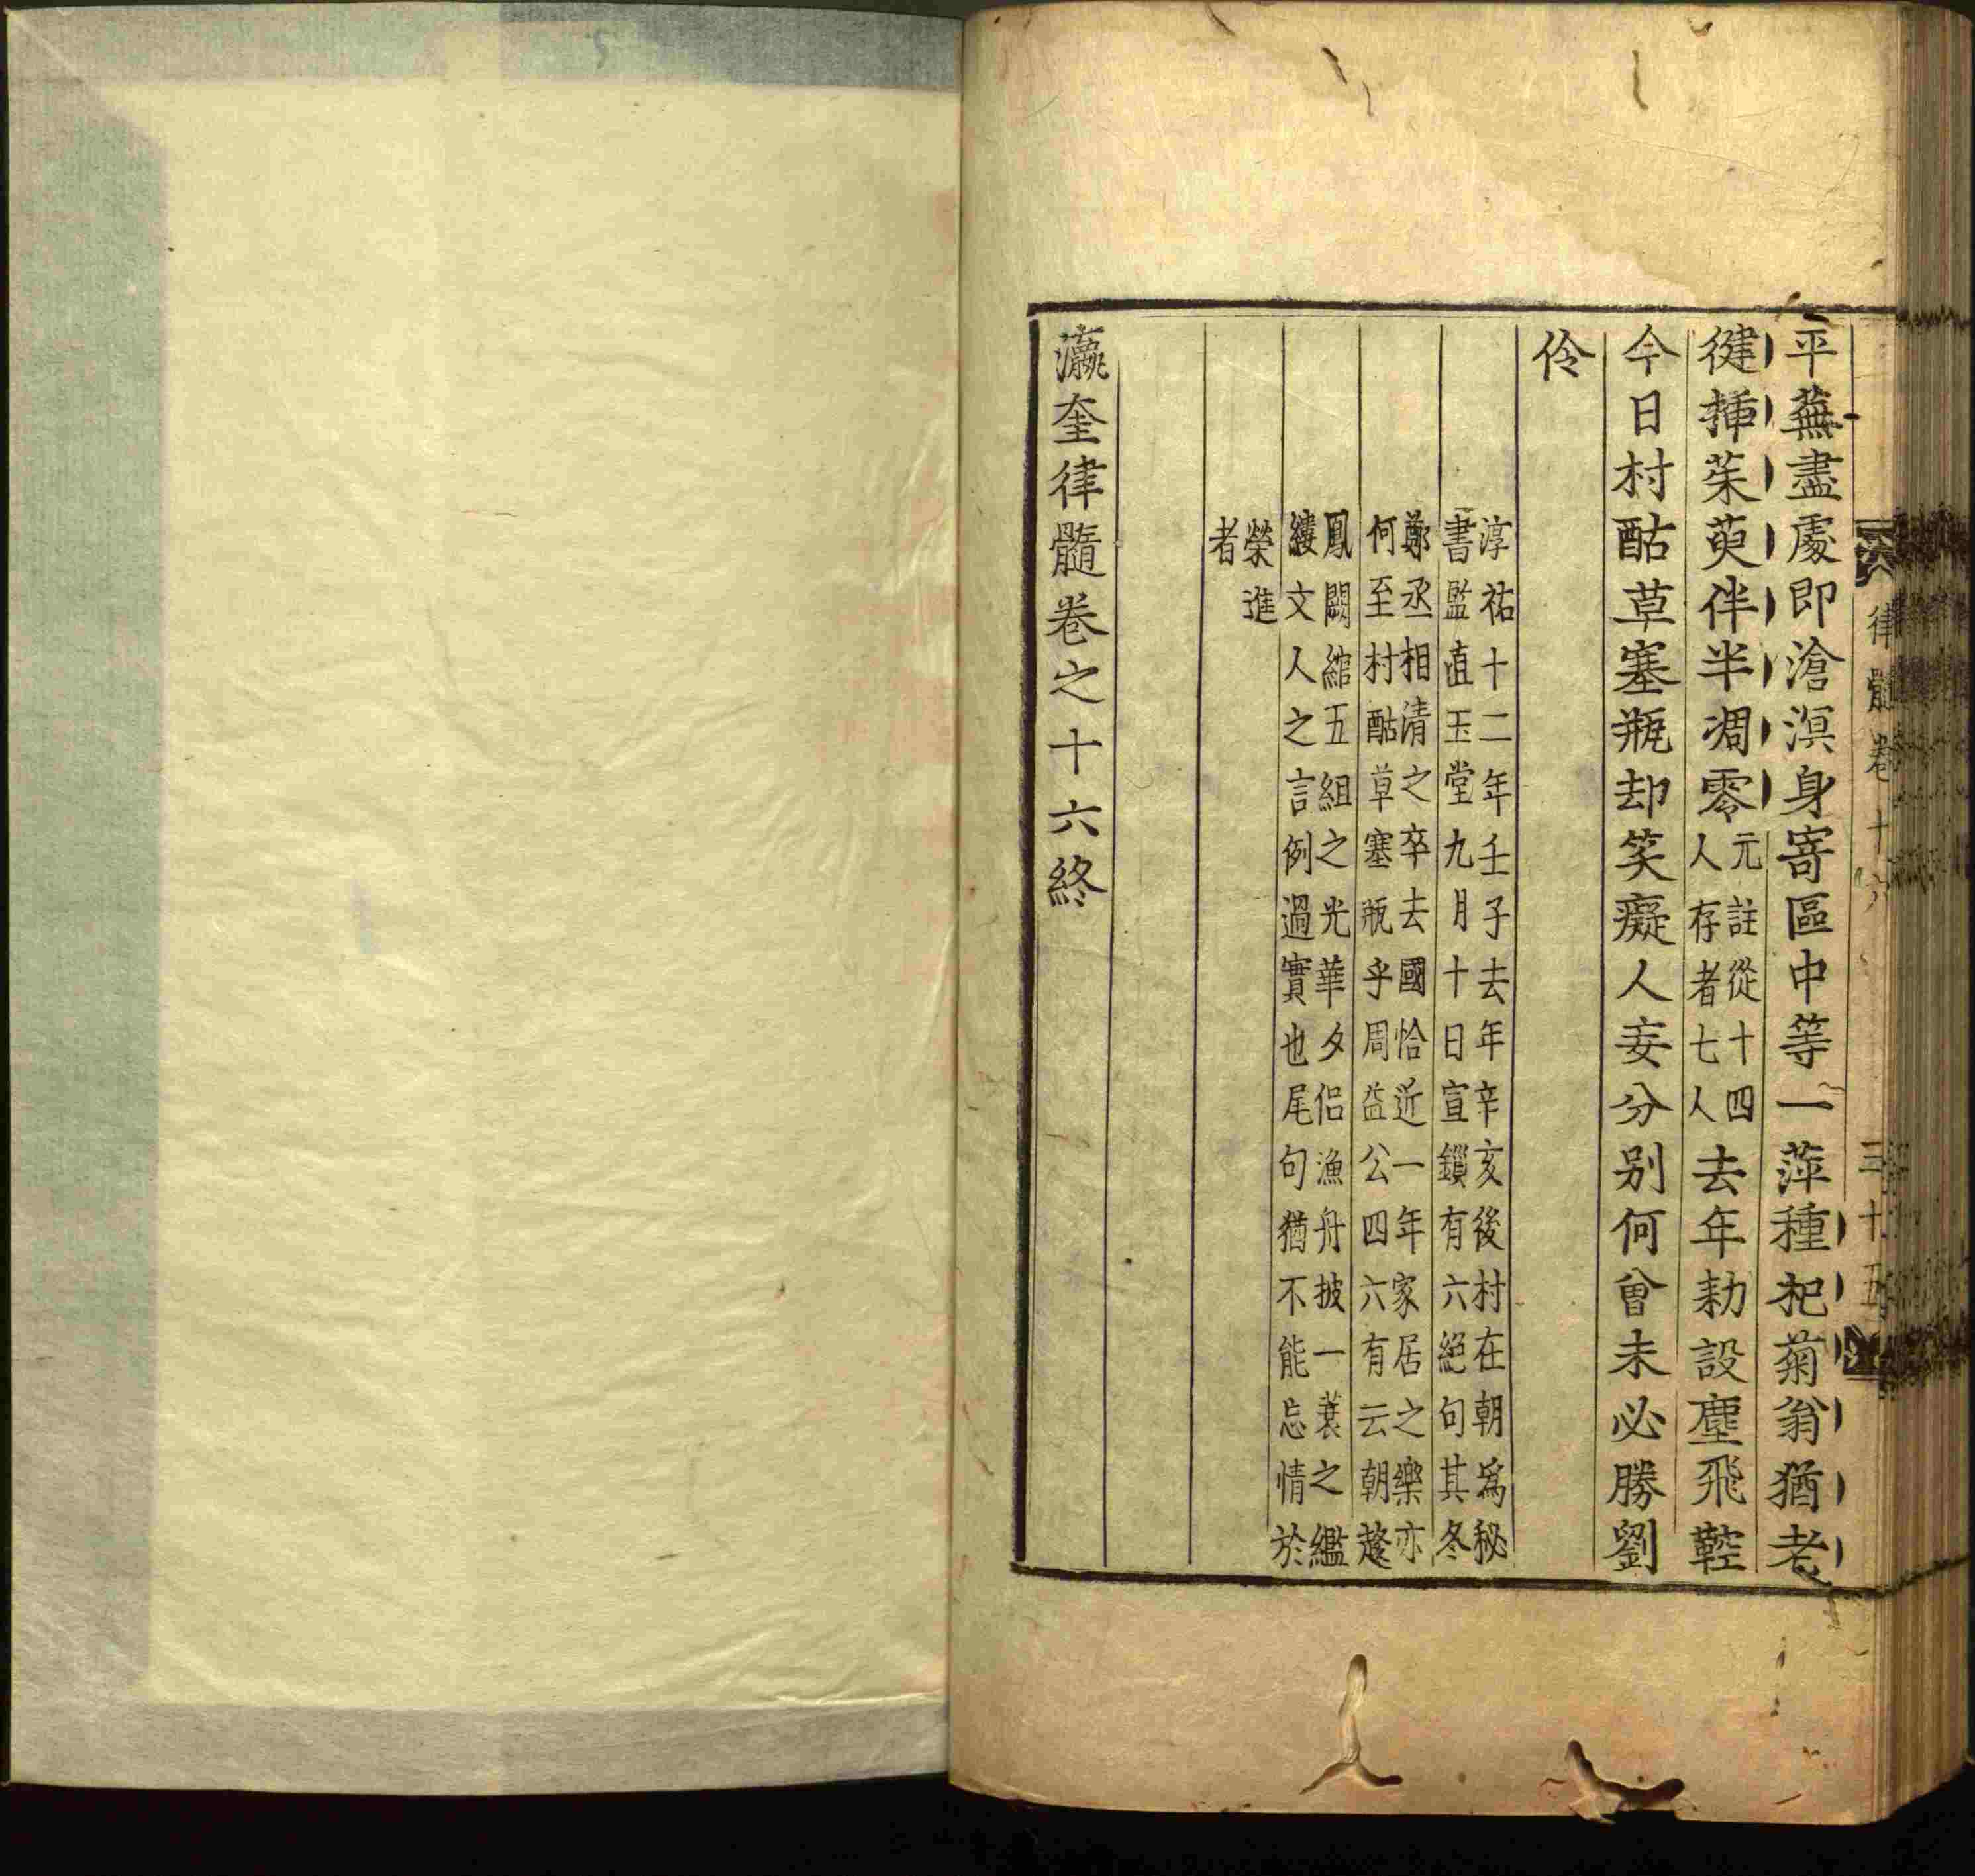 律髓卷十六
三十五
平蕪盡處即滄溟身寄區中等一萍種杞菊翁猶老
健揷茱萸伴半凋零元註從十四
人存者七人去年勑設塵飛鞚
今日村酤草塞瓶却笑癡人妄分别何曾未必勝劉
伶
淳祐十二年壬子去年辛亥後村在朝爲秘
書監直玉堂九月十日宣鎖有六絕句其冬
鄭丞相清之卒去國恰近一年家居之樂亦
何至村酤草塞瓶乎周益公四六有云朝趨
鳳闕綰五組之光華夕侣漁舟披一蓑之繿
縷文人之言例過實也尾句猶不能忘情於
榮進
者
瀛奎律髓卷之十六終